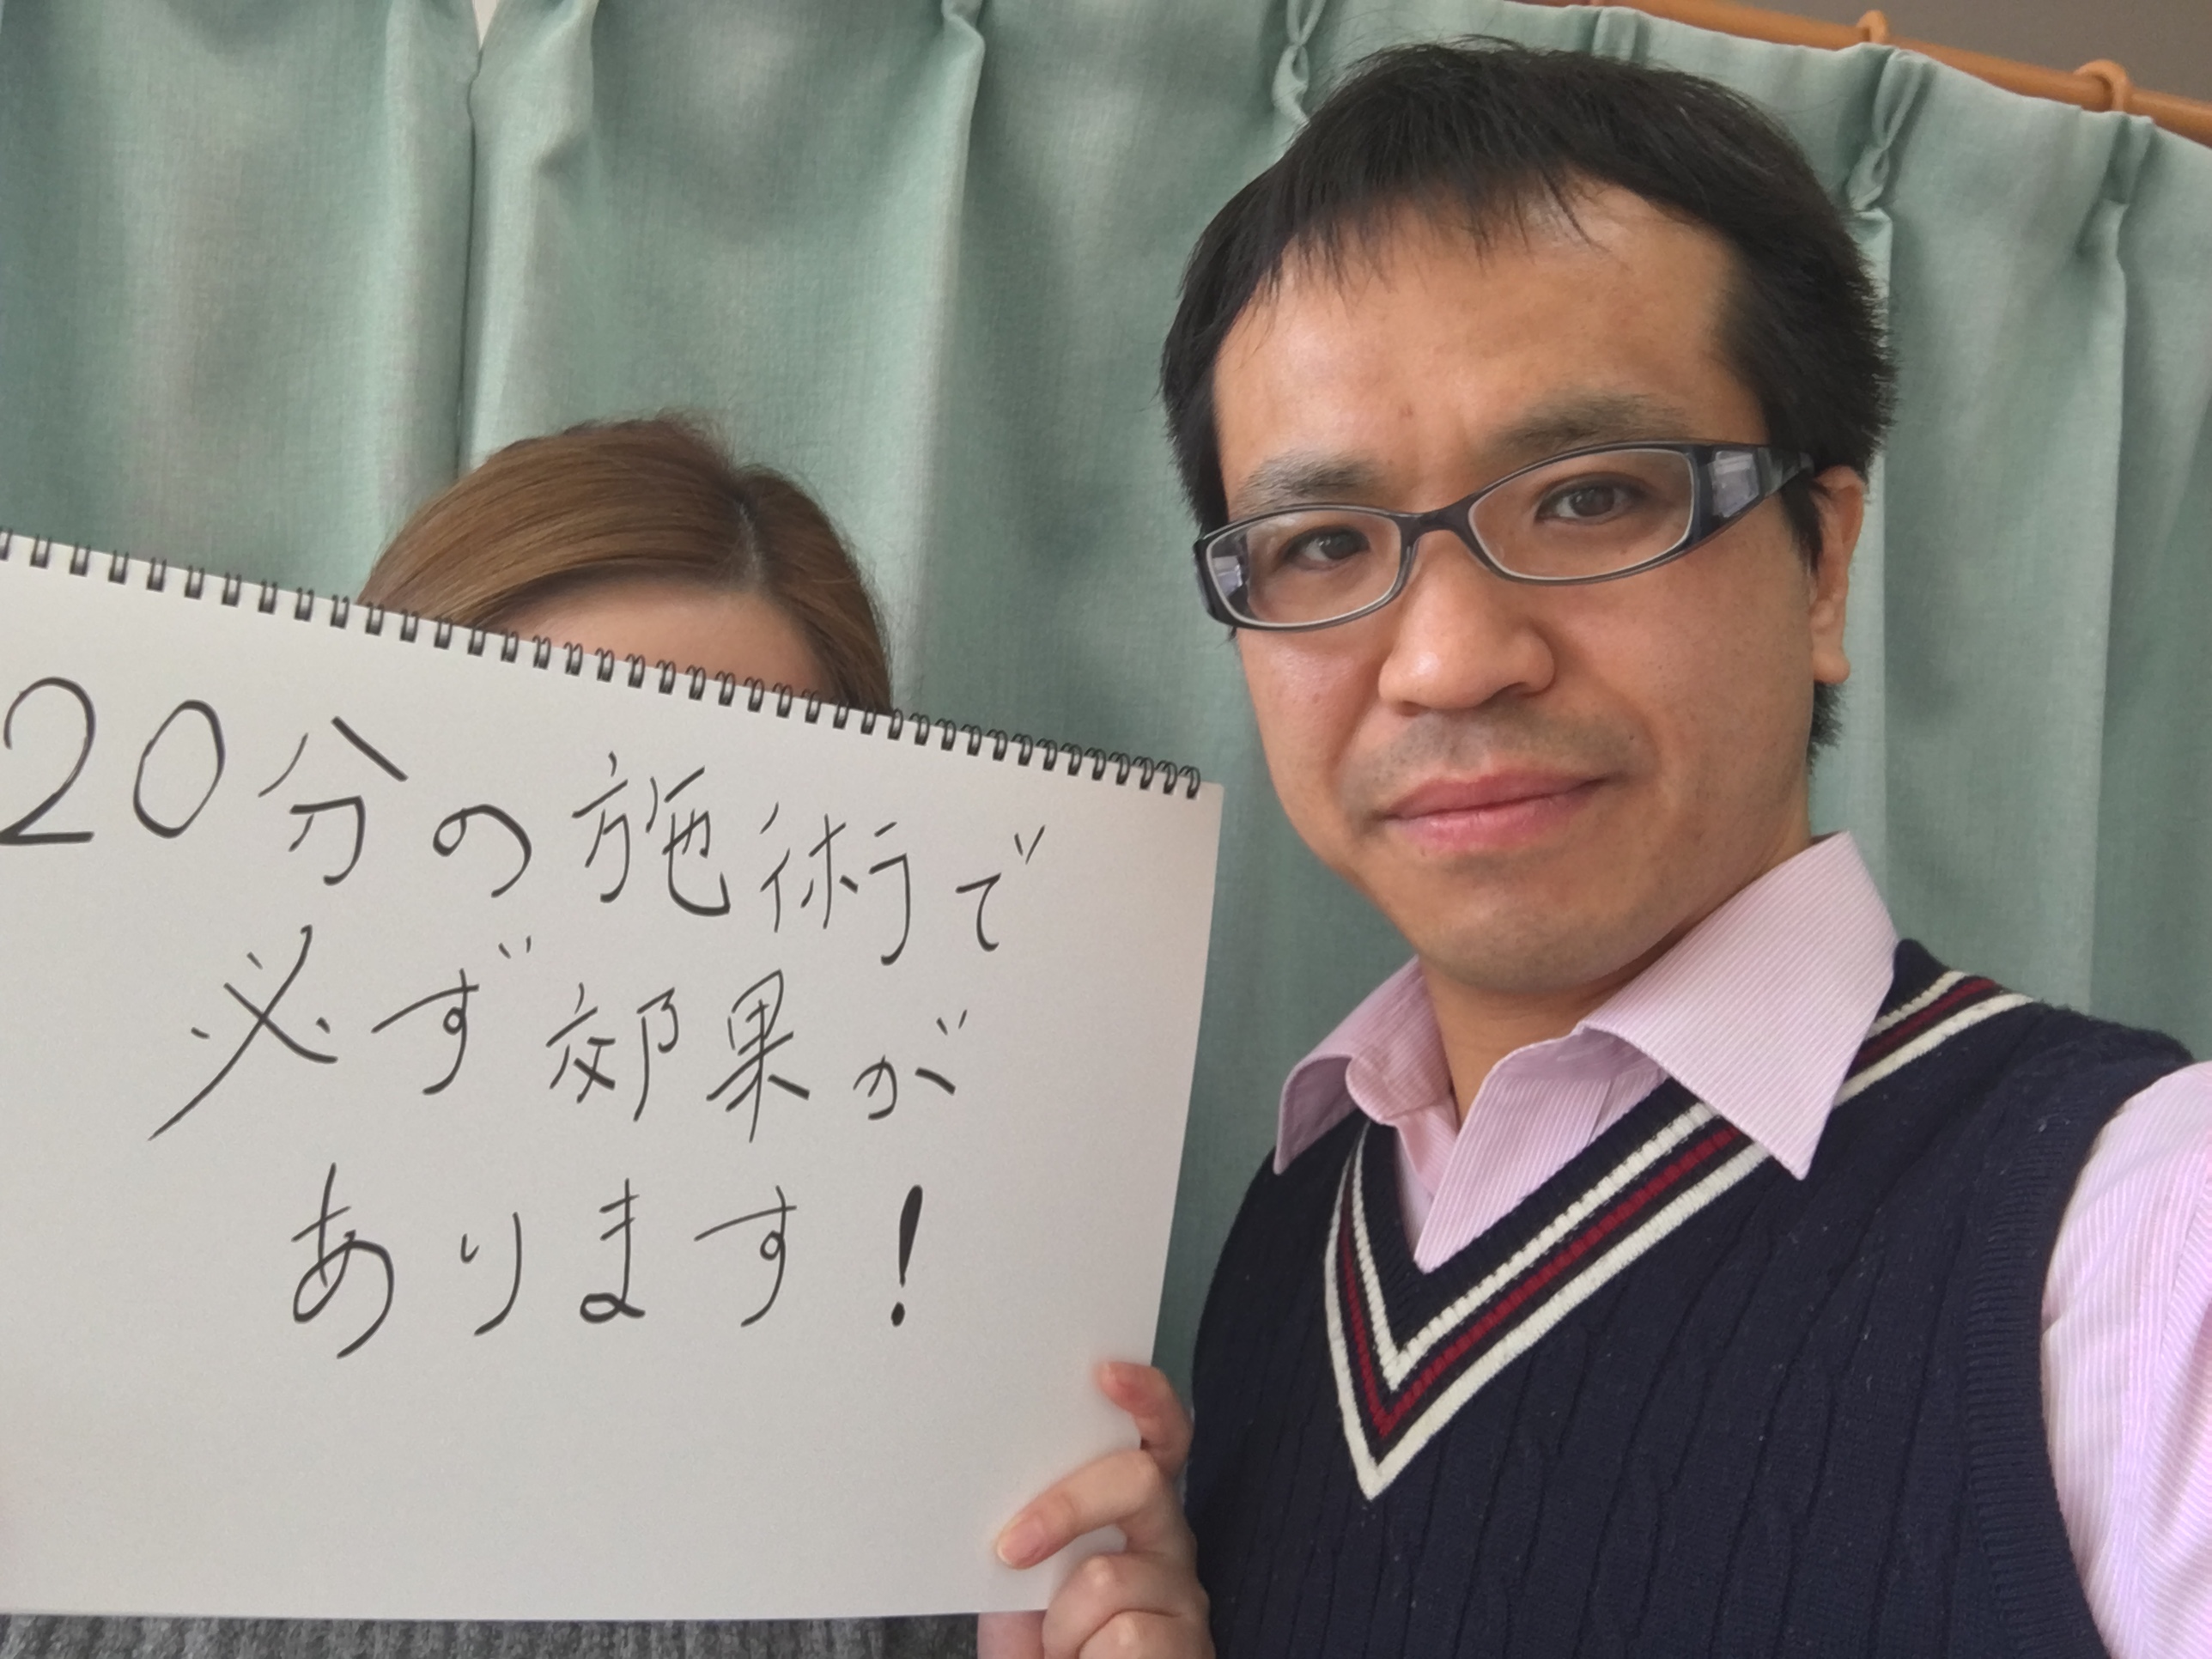 20分の施術で
必ず効果が
あります!